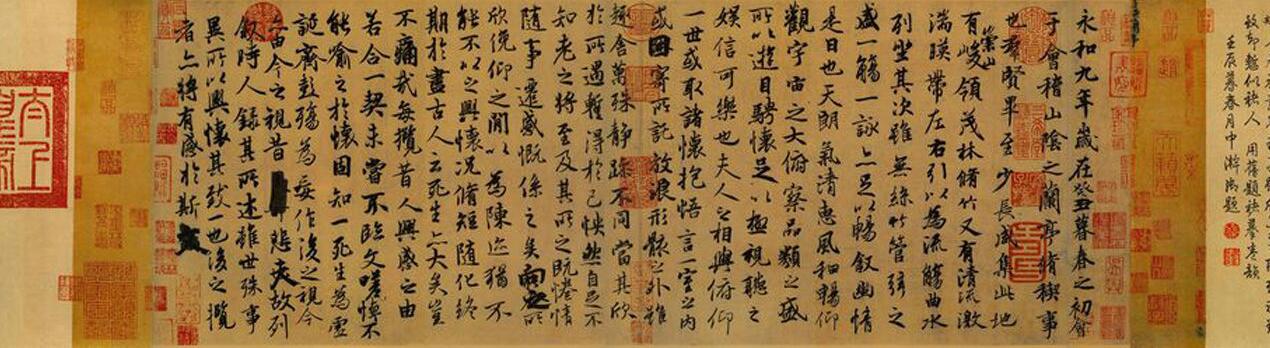 壬辰暮春月中澣御題
永和九年歲在癸丑暮春之初會
于會稽山陰之蘭亭脩稧事
也羣賢畢至少長咸集此地
有崇山峻領茂林脩竹又有清流激
湍暎帶左右引以為流觴曲水
列坐其次雖無絲竹管弦之
盛一觴一詠亦足以暢敘幽情
是日也天朗氣清惠風和暢仰
觀宇宙之大俯察品類之盛
所以遊目騁懷足以極視聽之
娛信可樂也夫人之相與俯仰
一世或取諸懷抱悟言一室之內
或因寄所託放浪形骸之外雖
趣舍萬殊靜躁不同當其欣
於所遇暫得於己怏然自足不
知老之將至及其所之既惓情
隨事遷感慨係之矣向之所
欣俛仰之閒以為陳迹猶不
能不以之興懷況脩短隨化終
期於盡古人云死生亦大矣豈
不痛哉每攬昔人興感之由
若合一契未嘗不臨文嗟悼不
能喻之於懷固知一死生為虛
誕齊彭殤為妄作後之視今
亦由今之視昔悲夫故列
敘時人錄其所述雖世殊事
異所以興懷其致一也後之攬
者亦將有感於斯文
太上